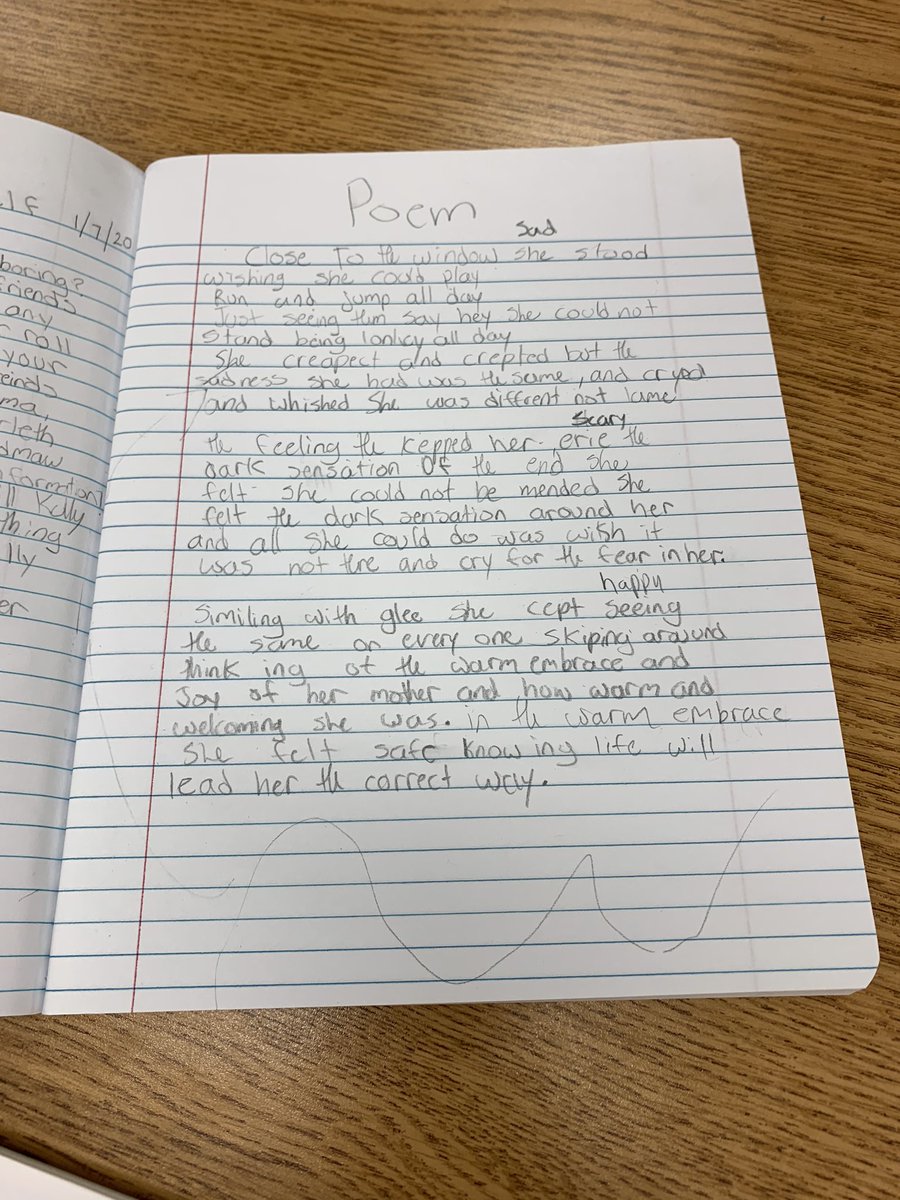 1/7/20
boring?
friends
any
roll
your
ma,
formation
Kally
thing
lly
er
Poem
Sad
Close To the window she stood
wishing she could play
Run and jump all day
Just seeing them say hey she could not
Stand being lonley all day
She creapect and crepted but the
sadness she had was the same, and cryed
and whished She was diffrent not lame
Scary
the feeling the kepped her. erie the
dark sensation Of the end she
felt she could not be mended she
felt the dark sensation around her
and all she could do was wish it
was not there and cry for the fear in her.
happy
Similing with glee she cept seeing
the same on every one skiping around
think ing of the warm embrace and
Joy of her mother and how warm and
welcoming she was. in the warm embrace
She felt safe knowing life will
lead her the correct way.